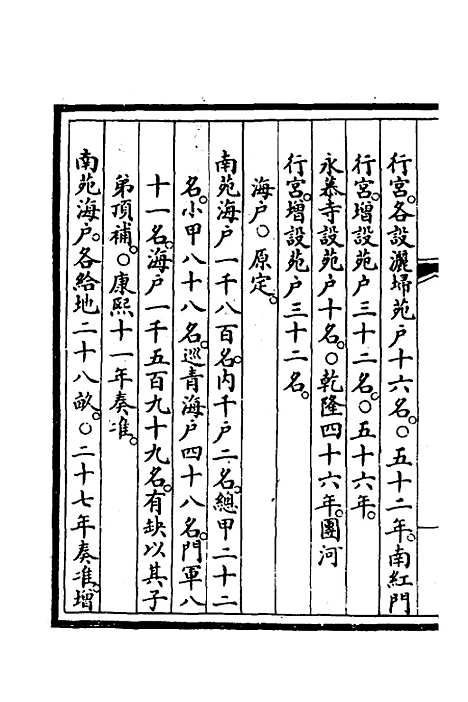 行宮。各設灑埽苑户十六名。○五十二年。南紅門
行宮。增設苑户三十二名。○五十六年。
永慕寺設苑户十名。○乾隆四十六年。團河
行宮。增設苑户三十二名。
海户○原定。
南苑海户一千八百名。内千户二名。總甲二十二
名。小甲八十八名。巡青海户四十八名。門軍八
十一名。海户一千五百九十九名。有缺以其子
弟頂補。○康熙十一年奏准。
南苑海户。各給地二十八畝。○二十七年奏准。增